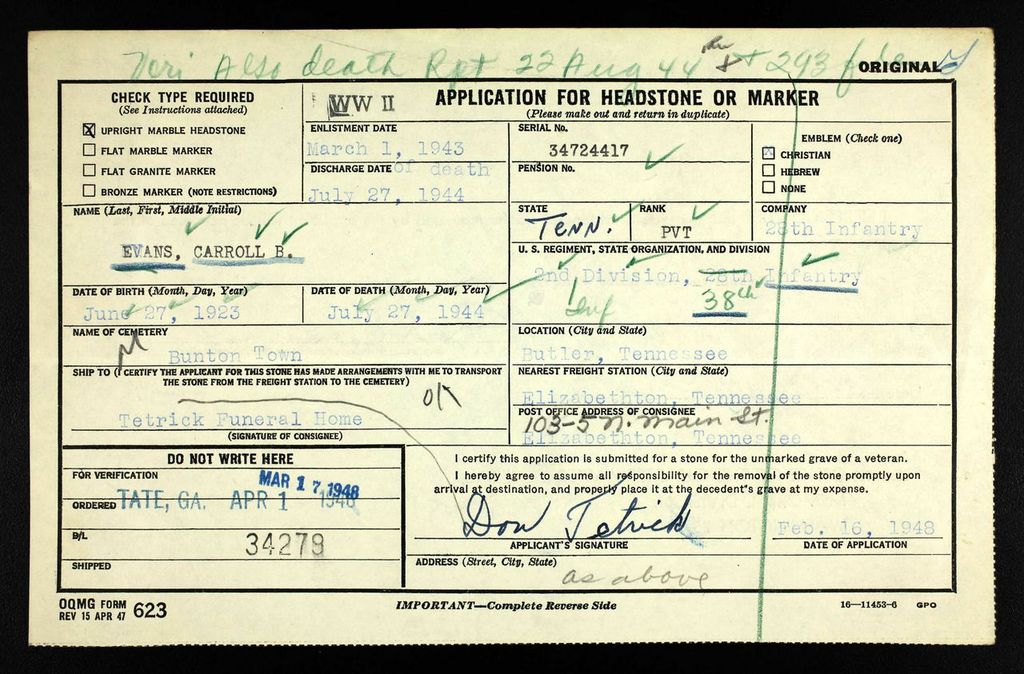 Veri Also death Rpt 22 Aug 44
293 file
ORIGINAL
CHECK TYPE REQUIRED
(See Instructions attached)
☒ UPRIGHT MARBLE HEADSTONE
☐ FLAT MARBLE MARKER
☐ FLAT GRANITE MARKER
☐ BRONZE MARKER (NOTE RESTRICTIONS)
WW II
APPLICATION FOR HEADSTONE OR MARKER
(Please make out and return in duplicate)
ENLISTMENT DATE
March 1, 1943
DISCHARGE DATE of death
July 27, 1944
SERIAL No.
34724417
PENSION No.
EMBLEM (Check one)
☒ CHRISTIAN
☐ HEBREW
☐ NONE
NAME (Last, First, Middle Initial)
EVANS, CARROLL B.
STATE
Tenn.
RANK
PVT
COMPANY
28th Infantry
U. S. REGIMENT, STATE ORGANIZATION, AND DIVISION
2nd Division, 28th Infantry
Inf 38th
DATE OF BIRTH (Month, Day, Year)
June 27, 1923
DATE OF DEATH (Month, Day, Year)
July 27, 1944
NAME OF CEMETERY
Bunton Town
LOCATION (City and State)
Butler, Tennessee
SHIP TO (I CERTIFY THE APPLICANT FOR THIS STONE HAS MADE ARRANGEMENTS WITH ME TO TRANSPORT
THE STONE FROM THE FREIGHT STATION TO THE CEMETERY)
OK
Tetrick Funeral Home
(SIGNATURE OF CONSIGNEE)
NEAREST FREIGHT STATION (City and State)
Elizabethton, Tennessee
POST OFFICE ADDRESS OF CONSIGNEE
103-5 N. Main St.
Elizabethton, Tennessee
DO NOT WRITE HERE
FOR VERIFICATION
MAR 17 1948
ORDERED TATE, GA. APR 1 1948
B/L
34279
SHIPPED
I certify this application is submitted for a stone for the unmarked grave of a veteran.
I hereby agree to assume all responsibility for the removal of the stone promptly upon
arrival at destination, and properly place it at the decedent's grave at my expense.
Don Tetrick
Feb. 16, 1948
APPLICANT'S SIGNATURE
DATE OF APPLICATION
ADDRESS (Street, City, State)
as above
OQMG FORM
REV 15 APR 47 623
IMPORTANT—Complete Reverse Side
16—11453-6 GPO